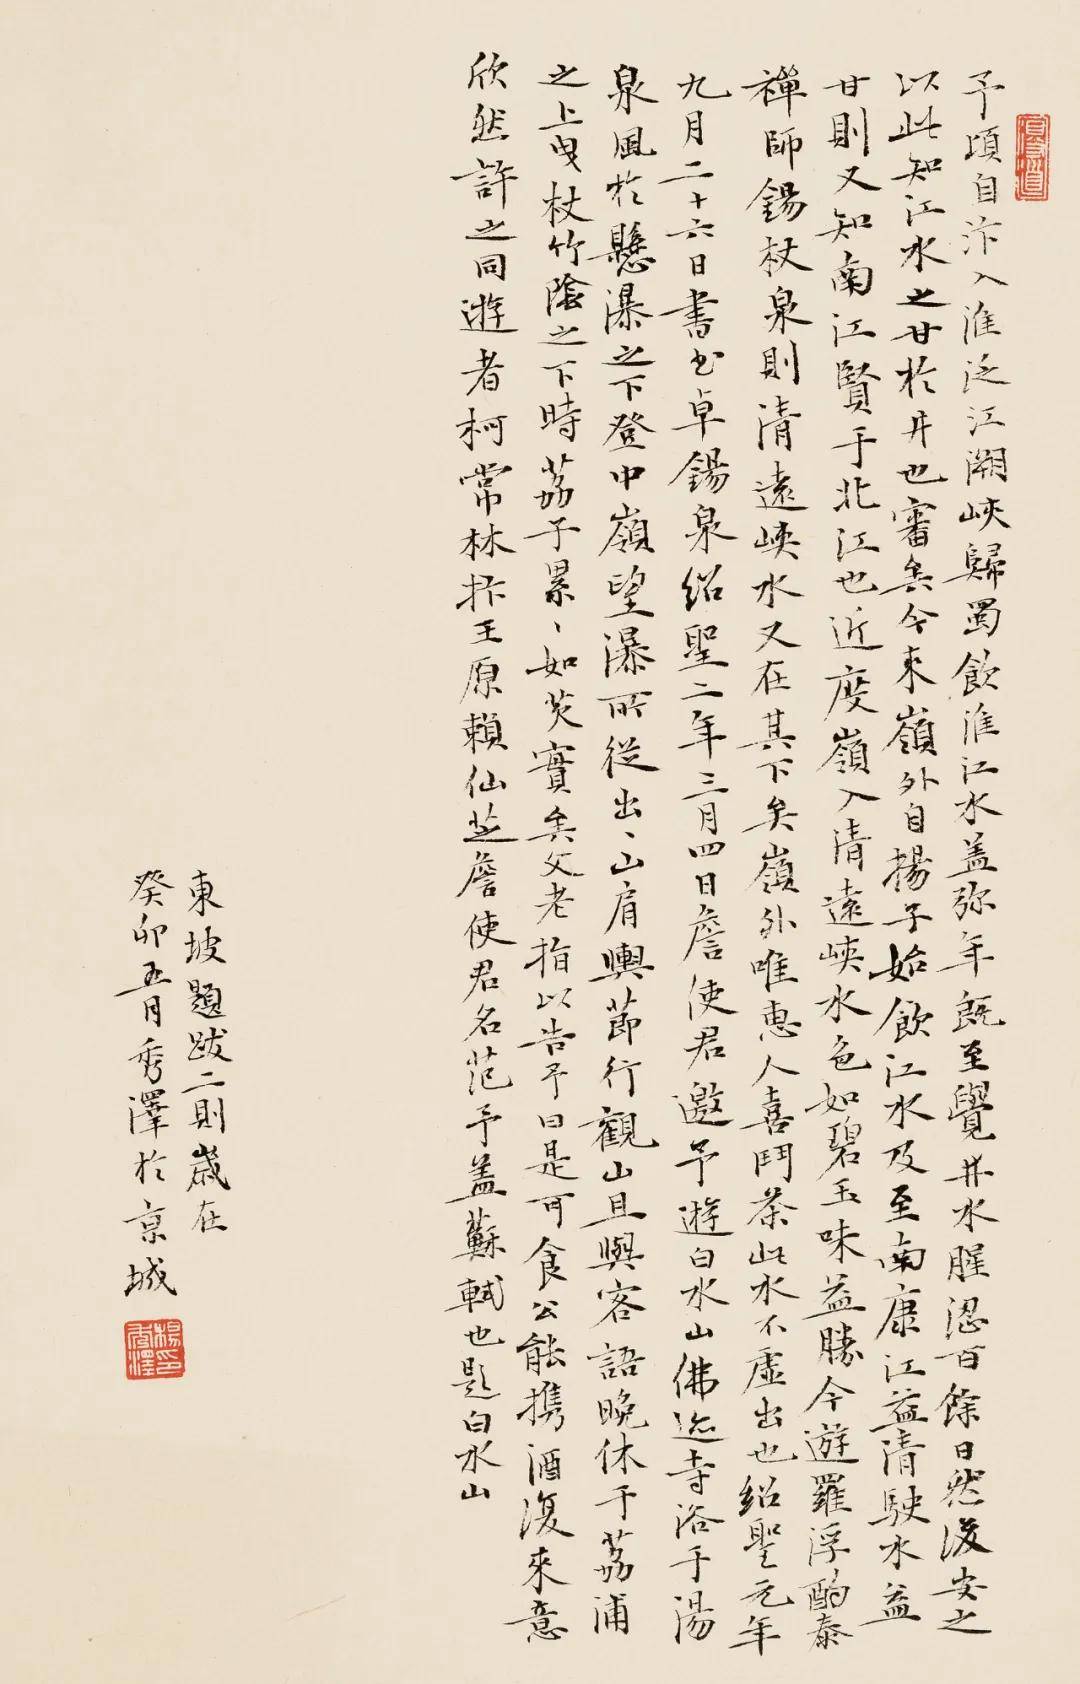 予頃自汴入淮泛江溯峽歸蜀飲淮江水盖弥年既至覺井水腥涊百餘日然後安之
以此知江水之甘於井也審矣今来嶺外自揚子始飲江水及至南康江益清駛水益
甘則又知南江賢于北江也近度嶺入清遠峽水色如碧玉味益勝今遊羅浮酌泰
禅師錫杖泉則清遠峽水又在其下矣嶺外唯惠人喜鬥茶此水不虚出也紹聖元年
九月二十六日書書卓錫泉紹聖二年三月四日詹使君邀予遊白水山佛迹寺浴于湯
泉風於懸瀑之下登中嶺望瀑所從出、山肩輿節行觀山且與客語晚休于荔浦
之上曳杖竹陰之下時荔子累、如芡實矣父老指以告予曰是可食公能携酒復來意
欣然許之同遊者柯常林抃王原賴仙芝詹使君名范予盖蘇軾也題白水山
東坡題跋二則歲在
癸卯五月秀澤於京城
楊秀澤印